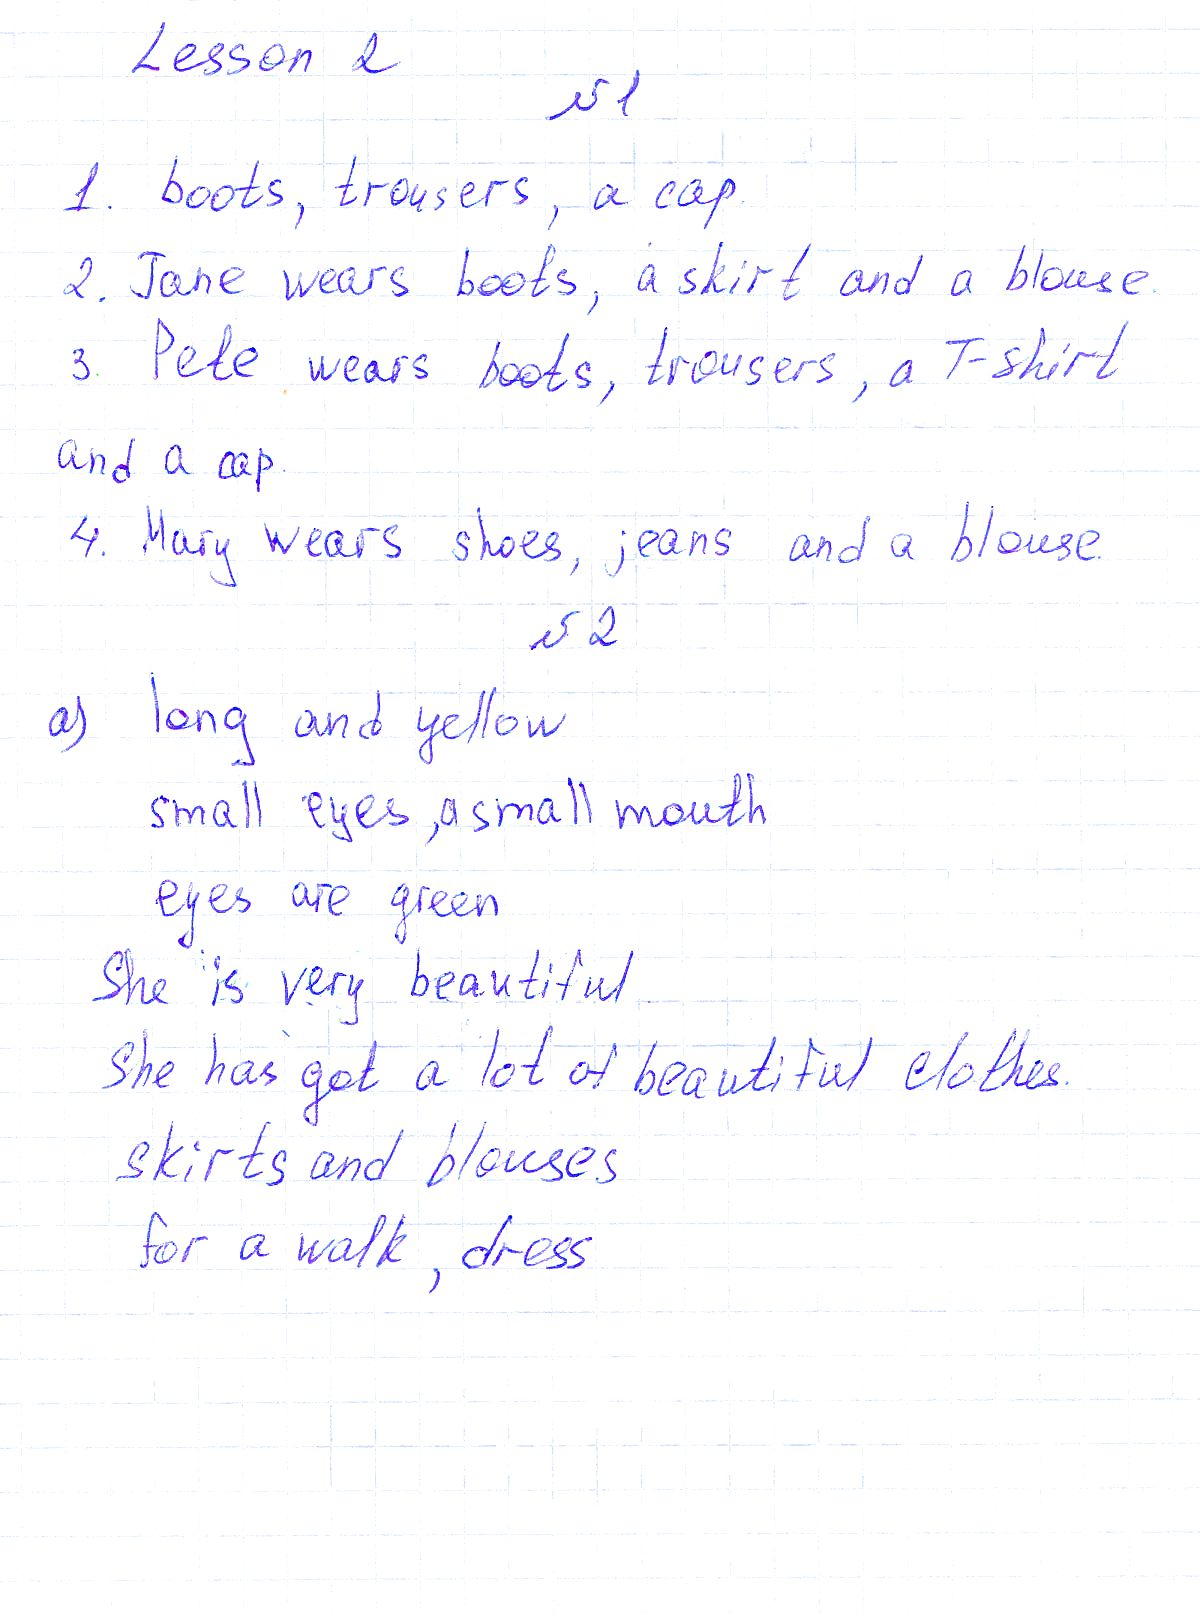 Lesson 2
№1
1. boots, trousers, a cap.
2. Jane wears boots, a skirt and a blouse.
3. Pete wears boots, trousers, a T-shirt
and a cap.
4. Mary wears shoes, jeans and a blouse.
№2
a) long and yellow
small eyes, a small mouth
eyes are green
She is very beautiful
She has got a lot of beautiful clothes.
skirts and blouses
for a walk, dress